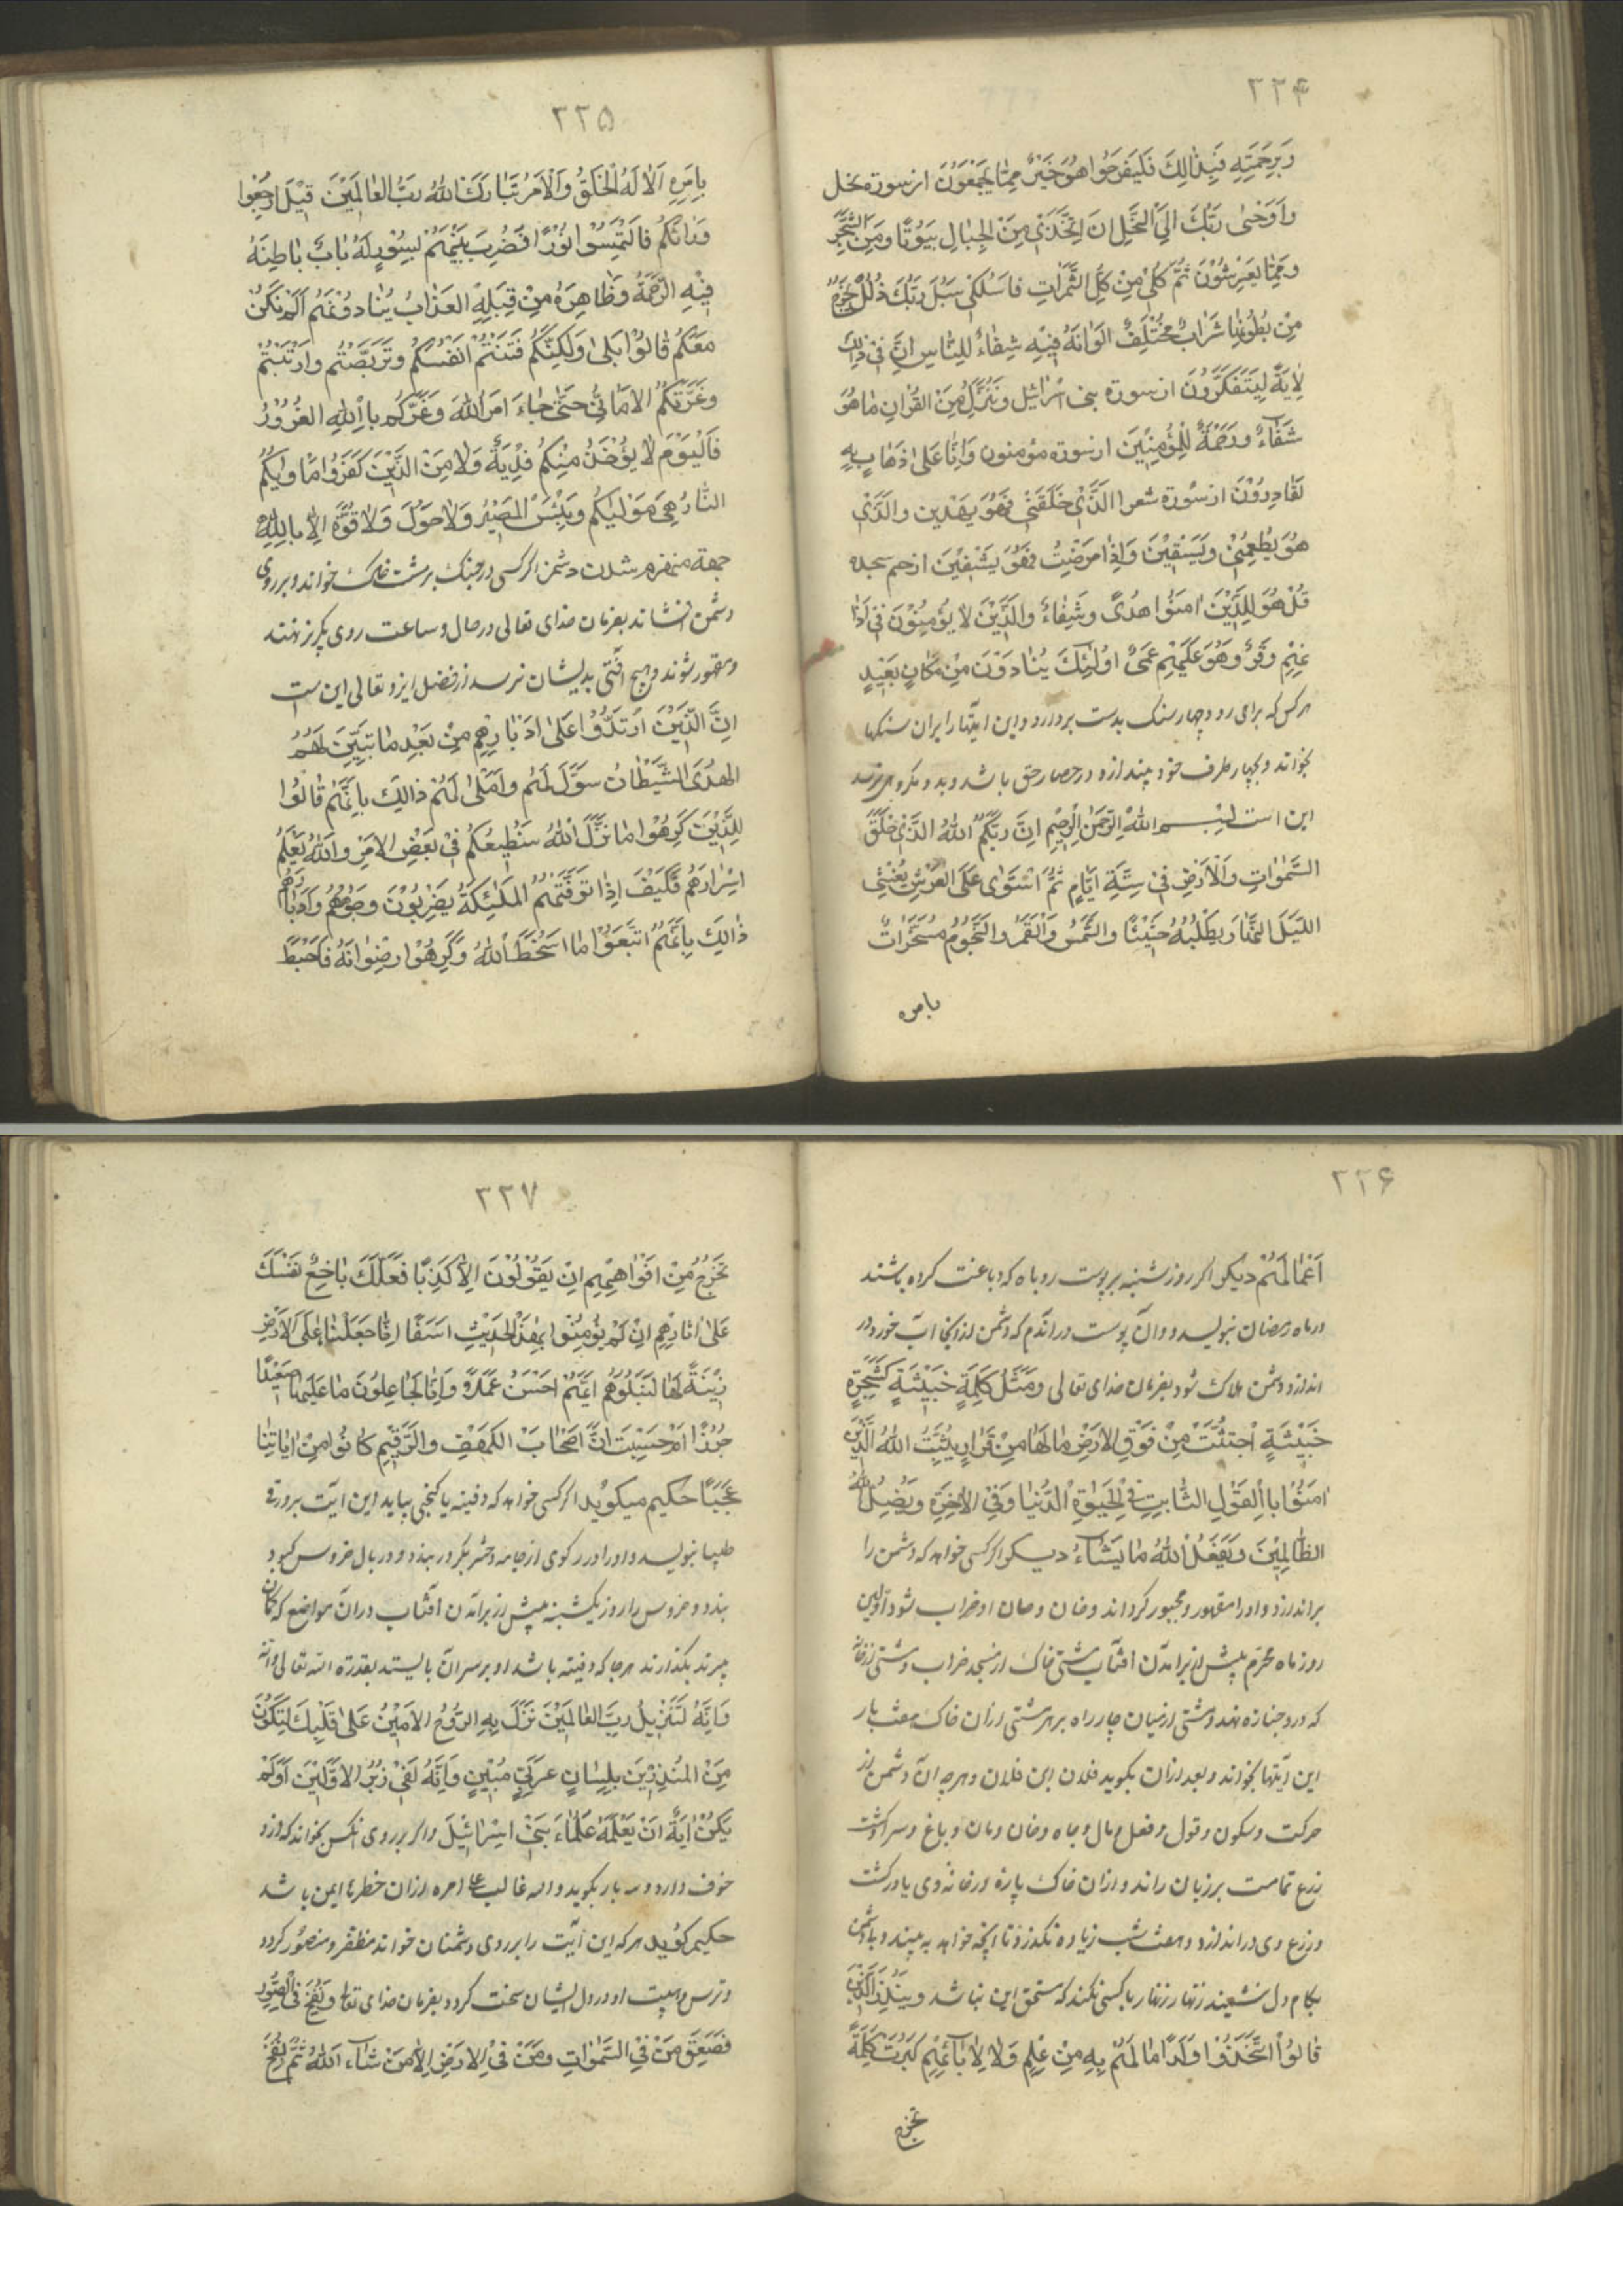 ۲۲۴
وَبِرَحْمَتِهِ فَبِذٰالِكَ فَلْيَفْرَحُوا هُوَ خَيْرٌ مِمّٰا يَجْمَعُونَ از سورة نحل
وَاَوْحٰى رَبُّكَ اِلَى النَّحْلِ اَنِ اتَّخِذِى مِنَ الْجِبٰالِ بُيُوتًا وَمِنَ الشَّجَرِ
وَمِمّٰا يَعْرِشُوْنَ ثُمَّ كُلِى مِنْ كُلِّ الثَّمَرٰاتِ فَاسْلُكِى سُبُلَ رَبِّكَ ذُلُلًا يَخْرُجُ
مِنْ بُطُونِهٰا شَرٰابٌ مُخْتَلِفٌ اَلْوٰانُهُ فِيْهِ شِفٰاءٌ لِلنّٰاسِ اِنَّ فِى ذٰلِكَ
لَاٰيَةً لِيَتَفَكَّرُونَ از سورة بنى اسرائيل وَنُنَزِّلُ مِنَ الْقُرْاٰنِ مٰا هُوَ
شَفٰاءٌ وَرَحْمَةٌ لِلْمُؤْمِنِيْنَ از سورة مؤمنون وَاِنّٰا عَلٰى ذَهٰابٍ بِهِ
لَقٰادِرُوْنَ از سورة شعرا الَّذِى خَلَقَنِى فَهُوَ يَهْدِين وَالَّذِى
هُوَ يُطْعِمُنِى وَيَسْقِيْنَ وَاِذٰا مَرِضْتُ فَهُوَ يَشْفِيْنَ از حم سجده
قُلْ هُوَ لِلَّذِيْنَ اٰمَنُوا هُدًى وَشِفٰاءٌ وَالَّذِيْنَ لٰا يُؤْمِنُوْنَ فِى اٰذٰا
نِهِمْ وَقْرٌ وَهُوَ عَلَيْهِمْ عَمًى اُولٰئِكَ يُنٰادَوْنَ مِنْ مَكٰانٍ بَعِيْدٍ
هركس كه براى رود چهار سنك بدست بردارد و اين ايتها را بران سنكها
بخواند و بچهار طرف خود بيندازد در حصار حق باشد و بدو مكروهى نرسد
اين است بسم الله الرحمن الرحيم اِنَّ رَبَّكُمُ اللّٰهُ الَّذِى خَلَقَ
السَّمٰوٰاتِ وَالْاَرْضَ فِى سِتَّةِ اَيّٰامٍ ثُمَّ اسْتَوٰى عَلَى الْعَرْشِ يُغْشِى
اللَّيْلَ النَّهٰارَ يَطْلُبُهُ حَثِيْثًا وَالشَّمْسَ وَالْقَمَرَ وَالنُّجُومَ مُسَخَّرٰاتٌ
بامره
۲۲۵
بِاَمْرِهِ اَلٰا لَهُ الْخَلْقُ وَالْاَمْرُ تَبٰارَكَ اللّٰهُ رَبُّ الْعٰالَمِيْنَ قِيْلَ ارْجِعُوا
وَرٰائَكُمْ فَالْتَمِسُوا نُوْرًا فَضُرِبَ بَيْنَهُمْ بِسُوْرٍ لَهُ بٰابٌ بٰاطِنَهُ
فِيْهِ الرَّحْمَةُ وَظٰاهِرَهُ مِنْ قِبَلِهِ الْعَذٰابُ يُنٰادُوْنَهُمْ اَلَمْ نَكُنْ
مَعَكُمْ قٰالُوْا بَلٰى وَلٰكِنَّكُمْ فَتَنْتُمْ اَنْفُسَكُمْ وَتَرَبَّصْتُمْ وَارْتَبْتُمْ
وَغَرَّتْكُمُ الْاَمٰانِىُّ حَتّٰى جٰاءَ اَمْرُ اللّٰهِ وَغَرَّكُمْ بِاللّٰهِ الْغَرُوْرُ
فَالْيَوْمَ لٰا يُؤْخَذُ مِنْكُمْ فِدْيَةٌ وَلٰا مِنَ الَّذِيْنَ كَفَرُوا مَاْوٰيكُمُ
النّٰارُ هِىَ مَوْلٰيكُمْ وَبِئْسَ الْمَصِيْرُ وَلٰا حَوْلَ وَلٰا قُوَّةَ اِلّٰا بِاللّٰهِ
جهة منهزم شدن دشمن اكر كسى در جنك بر مشت خاك خواند و بر روى
دشمن افشاند بفرمان خداى تعالى در حال و ساعت روى بكريز نهند
و مقهور شوند و هيچ آفتى بديشان نرسد از فضل ايزد تعالى اين ست
اِنَّ الَّذِيْنَ ارْتَدُّوْا عَلٰى اَدْبٰارِهِمْ مِنْ بَعْدِ مٰا تَبَيَّنَ لَهُمُ
الْهُدَى الشَّيْطٰانُ سَوَّلَ لَهُمْ وَاَمْلٰى لَهُمْ ذٰلِكَ بِاَنَّهُمْ قٰالُوْا
لِلَّذِيْنَ كَرِهُوْا مٰا نَزَّلَ اللّٰهُ سَنُطِيْعُكُمْ فِى بَعْضِ الْاَمْرِ وَاللّٰهُ يَعْلَمُ
اِسْرٰارَهُمْ فَكَيْفَ اِذٰا تَوَفَّتْهُمُ الْمَلٰئِكَةُ يَضْرِبُوْنَ وُجُوْهَهُمْ وَاَدْبٰارَهُمْ
ذٰالِكَ بِاَنَّهُمُ اتَّبَعُوْا مٰا اَسْخَطَ اللّٰهَ وَكَرِهُوْا رِضْوٰانَهُ فَاَحْبَطَ
۲۲۶
اَعْمٰالَهُمْ ديكر اكر روز شنبه بر پوست روباه كه دباغت كرده باشند
در ماه رمضان بنويسد و آن پوست در اندم كه دشمن از آنجا آب خورد در
اندازد دشمن هلاك شود بفرمان خداى تعالى وَمَثَلُ كَلِمَةٍ خَبِيْثَةٍ كَشَجَرَةٍ
خَبِيْثَةٍ اجْتُثَّتْ مِنْ فَوْقِ الْاَرْضِ مٰا لَهٰا مِنْ قَرٰارٍ يُثَبِّتُ اللّٰهُ الَّذِيْنَ
اٰمَنُوْا بِالْقَوْلِ الثّٰابِتِ فِى الْحَيٰوةِ الدُّنْيٰا وَفِى الْاٰخِرَةِ وَيُضِلُّ اللّٰهُ
الظّٰالِمِيْنَ وَيَفْعَلُ اللّٰهُ مٰا يَشٰاءُ ديكر اكر كسى خواهد كه دشمن را
براندازد و او را مقهور و مجبور كرداند و خان و مان او خراب شود اولين
روز ماه محرم پيش از برآمدن آفتاب مشتى خاك از مسجد خراب و مشتى از خانه
كه درو جنازه نهند و مشتى از ميان چار راه بر هر مشتى ازان خاك هفت بار
اين ايتها بخواند و بعد ازان بكويد فلان ابن فلان و هرچه آن دشمن از
حركت و سكون و قول و فعل و مال و جاه و خان و مان و باغ و سرا و كشت
زرع تمامست بر زبان راند و ازان خاك پاره در خانه وى يا در كشت
و زرع وى دراندازد و هفت شب زياده نكذرد تا آنچه خواهد به بيند و با دشمن
بكام دل نشيند زنهار زنهار با كسى نكند كه مستحق اين نباشد وَيُنْذِرَ الَّذِيْنَ
قٰالُوْا اتَّخَذَ اللّٰهُ وَلَدًا مٰا لَهُمْ بِهِ مِنْ عِلْمٍ وَلٰا لِاٰبٰائِهِمْ كَبُرَتْ كَلِمَةً
تخرج
۲۲۷
تَخْرُجُ مِنْ اَفْوٰاهِهِمْ اِنْ يَقُوْلُوْنَ اِلّٰا كَذِبًا فَلَعَلَّكَ بٰاخِعٌ نَفْسَكَ
عَلٰى اٰثٰارِهِمْ اِنْ لَمْ يُؤْمِنُوْا بِهٰذَا الْحَدِيْثِ اَسَفًا اِنّٰا جَعَلْنٰا مٰا عَلَى الْاَرْضِ
زِيْنَةً لَهٰا لِنَبْلُوَهُمْ اَيُّهُمْ اَحْسَنُ عَمَلًا وَاِنّٰا لَجٰاعِلُوْنَ مٰا عَلَيْهٰا صَعِيْدًا
جُرُزًا اَمْ حَسِبْتَ اَنَّ اَصْحٰابَ الْكَهْفِ وَالرَّقِيْمِ كٰانُوْا مِنْ اٰيٰاتِنٰا
عَجَبًا حكيم ميكويد اكر كسى خواهد كه دفينه يا كنجى بيابد اين ايت بر ورق
طلبها بنويسد و او را در ركوى از جامه دختر بكر در بندد و در بال خروس كبود
بندد و خروس را روز يكشنبه پيش از برآمدن آفتاب در آن مواضع كه كمان
ميبرند بكذارند هر جا كه دفينه باشد او بر سر آن بايستد بقدرة الله تعالى و انه
وَاِنَّهُ لَتَنْزِيْلُ رَبِّ الْعٰالَمِيْنَ نَزَلَ بِهِ الرُّوْحُ الْاَمِيْنُ عَلٰى قَلْبِكَ لِتَكُوْنَ
مِنَ الْمُنْذِرِيْنَ بِلِسٰانٍ عَرَبِىٍّ مُبِيْنٍ وَاِنَّهُ لَفِى زُبُرِ الْاَوَّلِيْنَ اَوَلَمْ
يَكُنْ اٰيَةً اَنْ يَعْلَمَهُ عُلَمٰاءُ بَنِى اِسْرٰائِيْلَ و اكر بر روى انكس بخواند كه ازو
خوف دارد و سه بار بكويد و الله غالب على امره ازان خطرها ايمن باشد
حكيم كويد هر كه اين آيت را بر روى دشمنان خواند مظفر و منصور كردد
و ترس و هيبت او در دل ايشان سخت كردد بفرمان خداى تعالى وَنُفِخَ فِى الصُّوْرِ
فَصَعِقَ مَنْ فِى السَّمٰوٰاتِ وَمَنْ فِى الْاَرْضِ اِلّٰا مَنْ شٰاءَ اللّٰهُ ثُمَّ نُفِخَ